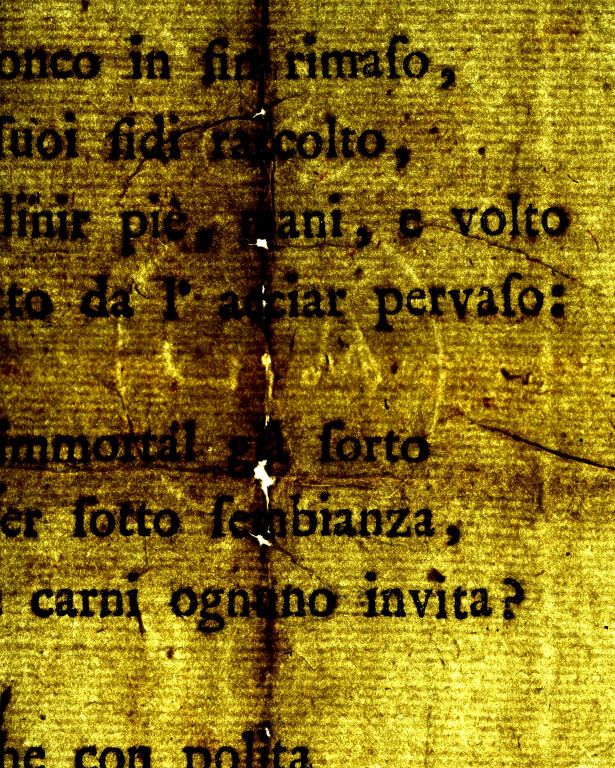 onco in fin rimaſo,
ſuoi fidi raccolto,
piè, mani, e volto
to da l' acciar pervaſo:
immortal già ſorto
er ſotto ſembianza,
carni ognuno invita?
he con polita